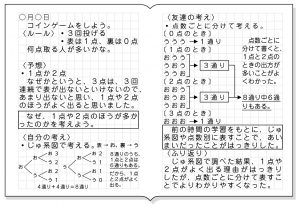 ○月○日
コインゲームをしよう。
〈ルール〉・3回投げる
・表は1点、裏は0点
何点取る人が多いかな。
〈予想〉
・1点か2点
なぜかというと、3点は、3回
連続で表が出ないといけないので、
あまり出ないと思い、1点や2点
のほうがよく出ると思いました。
なぜ、1点や2点のほうが多か
ったのかを考えよう。
〈自分の考え〉
・じゅ形図で考える。
表→お、裏→う
4通り+4通り=8通り
〈友達の考え〉
・点数ごとに分けて考える。
(0点のとき)
ううう→1通り
(1点のとき)
おうう
うおう
ううお
3通り
(2点のとき)
おおう
おうお
うおお
3通り
(3点のとき)
おおお→1通り
点数ごとに
分けて書くと、
1点と2点の
ときの出方が
多いことがよ
くわかった。
8通り中6通
りもある。
前の時間の学習をもとに、じゅ
形図や点数別に表すことで、あい
まいだったことがはっきりした。
〈ふり返り〉
じゅ形図で調べた結果、1点や
2点がよく出る理由がはっきりし
たが、点数ごとに分けて表すこ
とでよりわかりやすくなった。